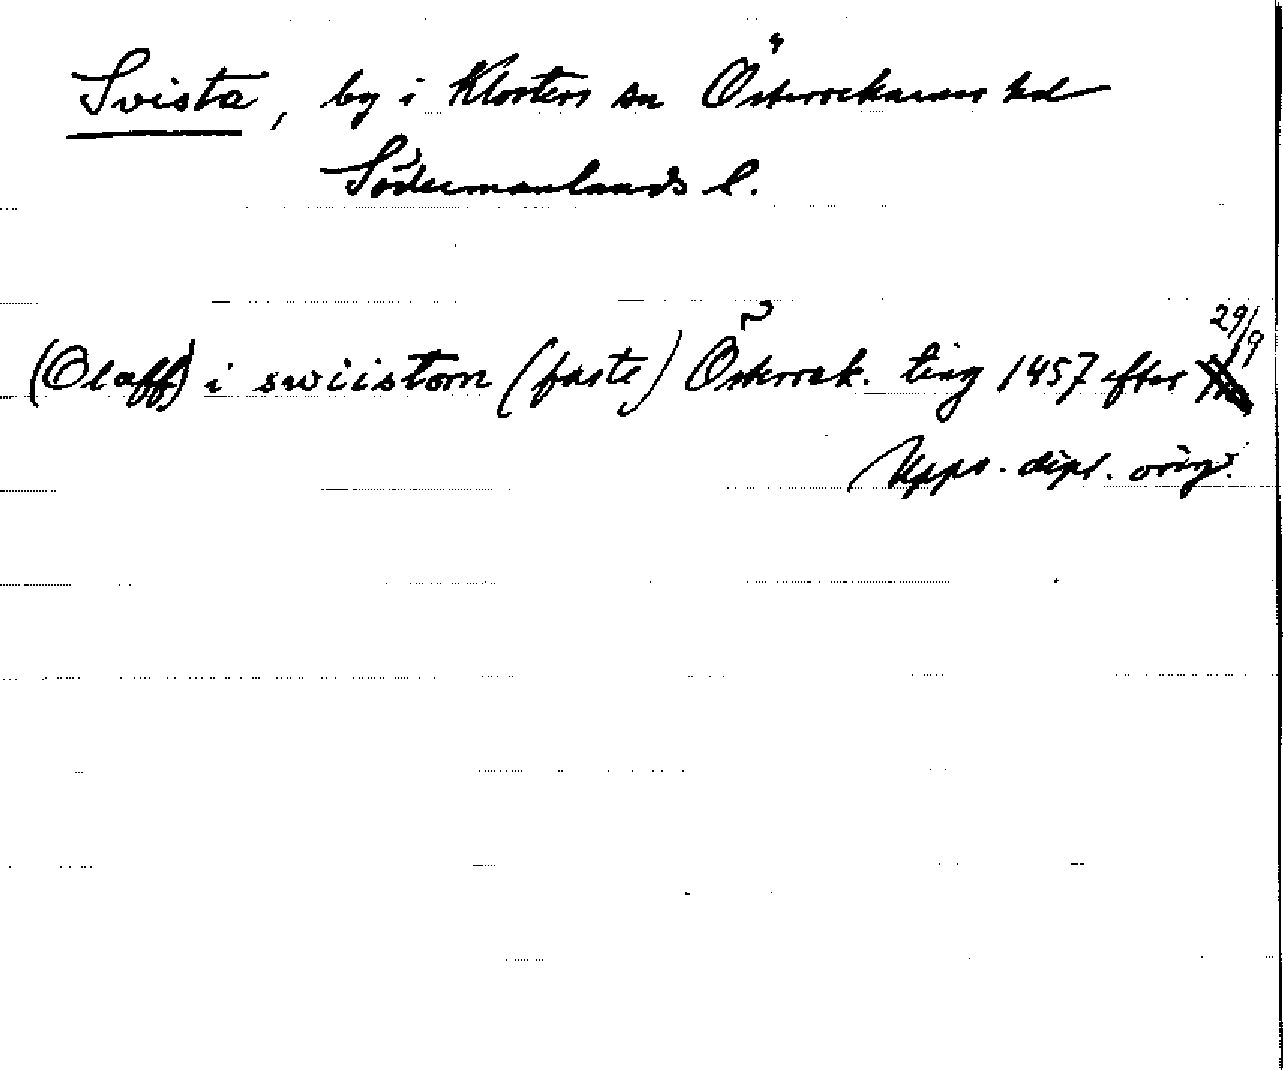 Svista, by i Klosters sn Österrekarnes hd
Södermanlands l.
(Olaff) i swiistom (faste) Österrek. ting 1457 efter 29/9
Upps. dipl. orig.